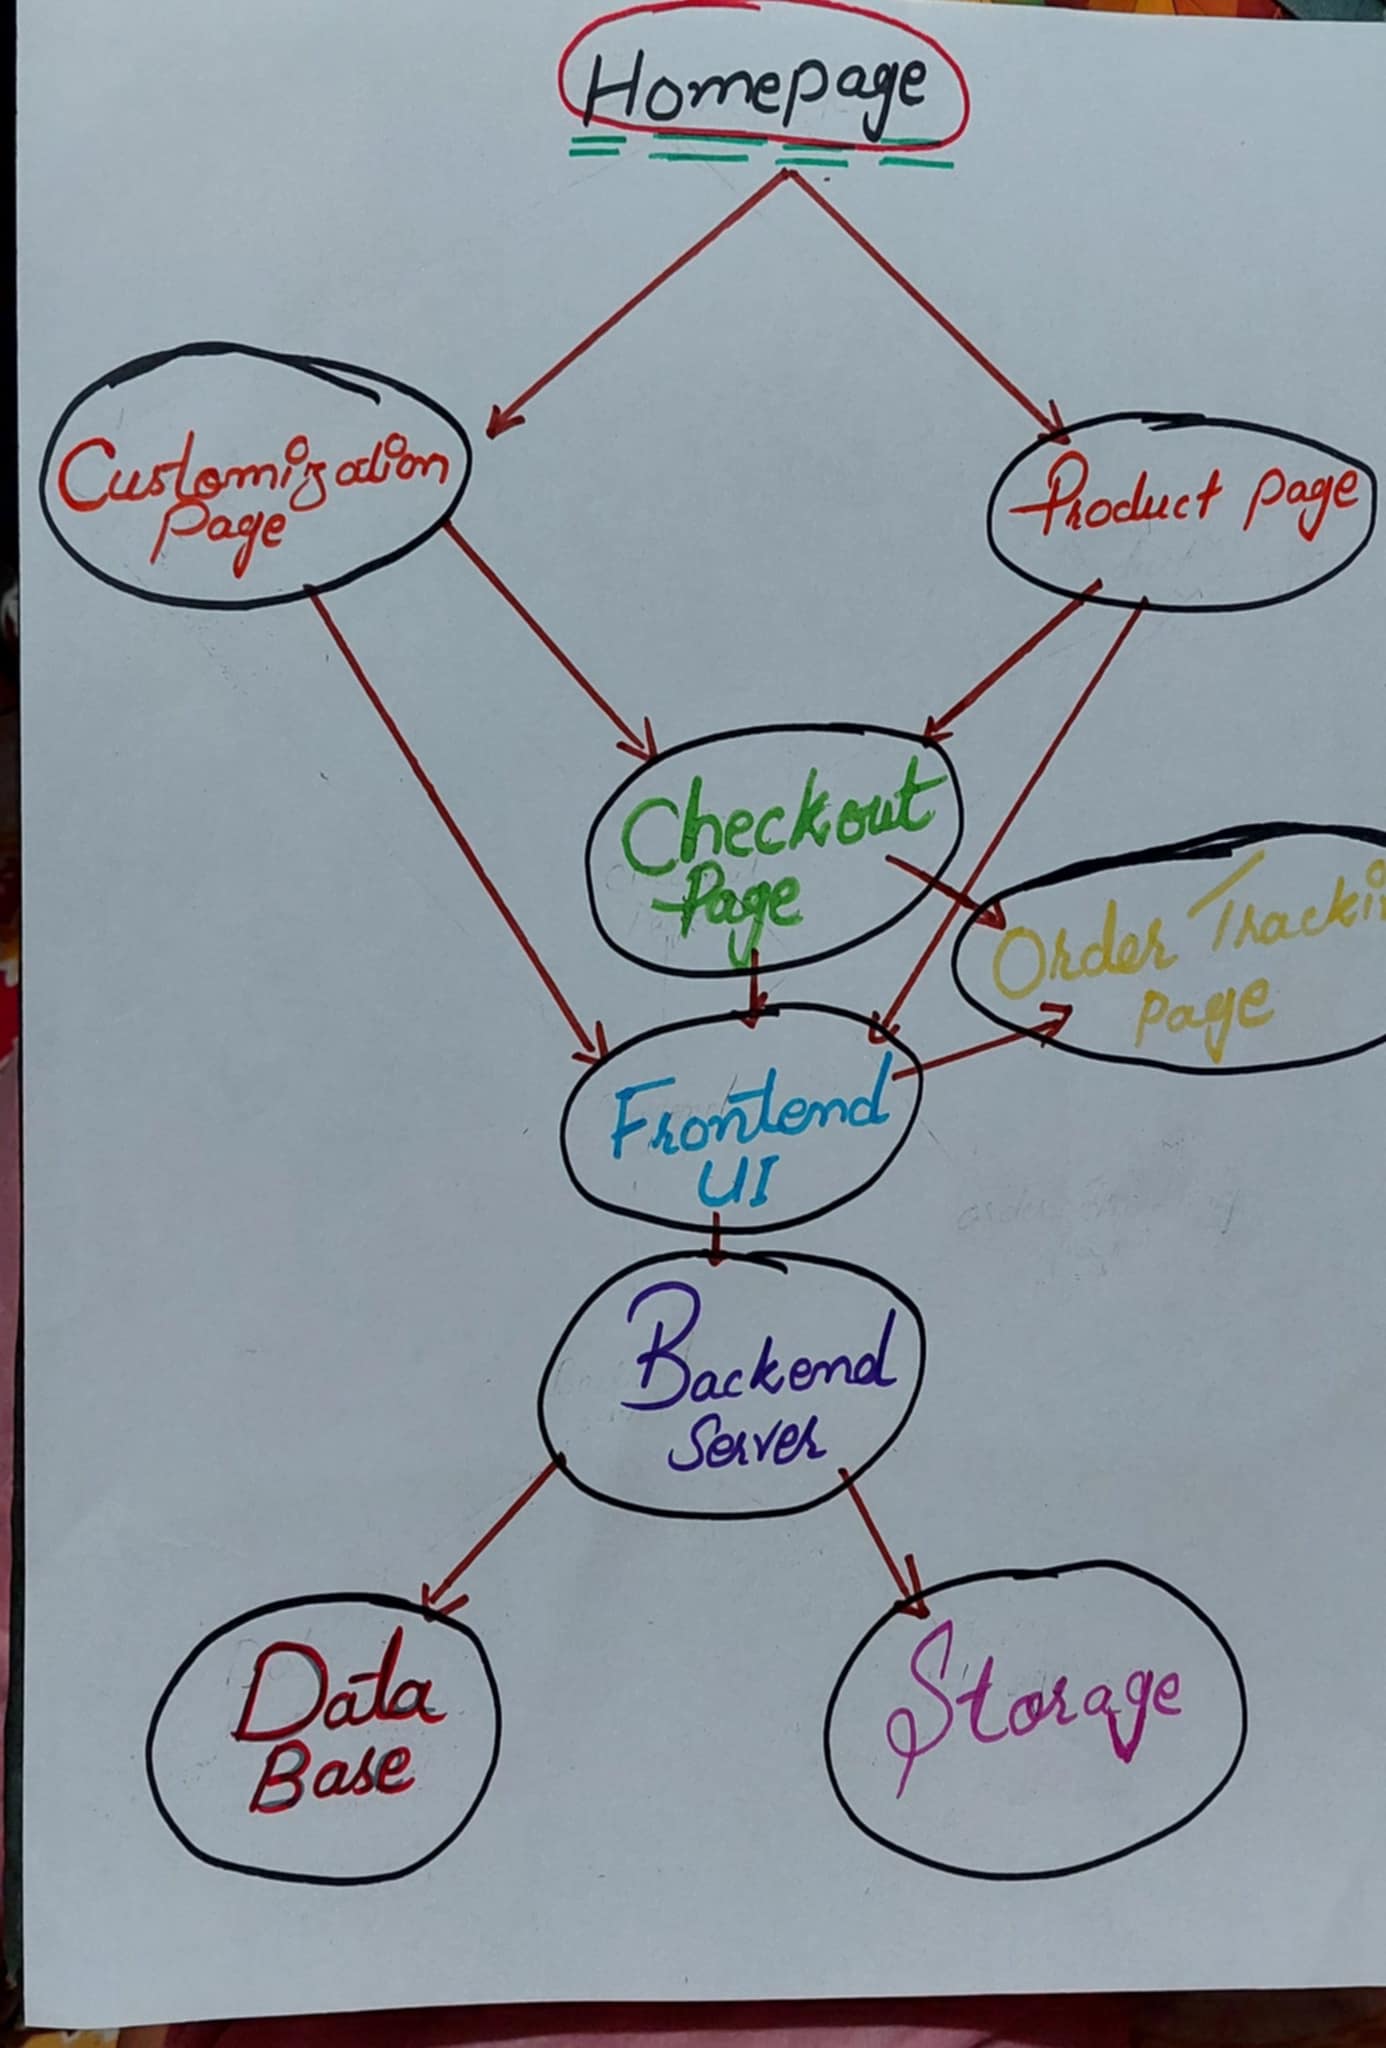 Homepage
Customization
Page
Product page
Checkout
Page
Order Tracki
page
Frontend
UI
Backend
Server
Data
Base
Storage